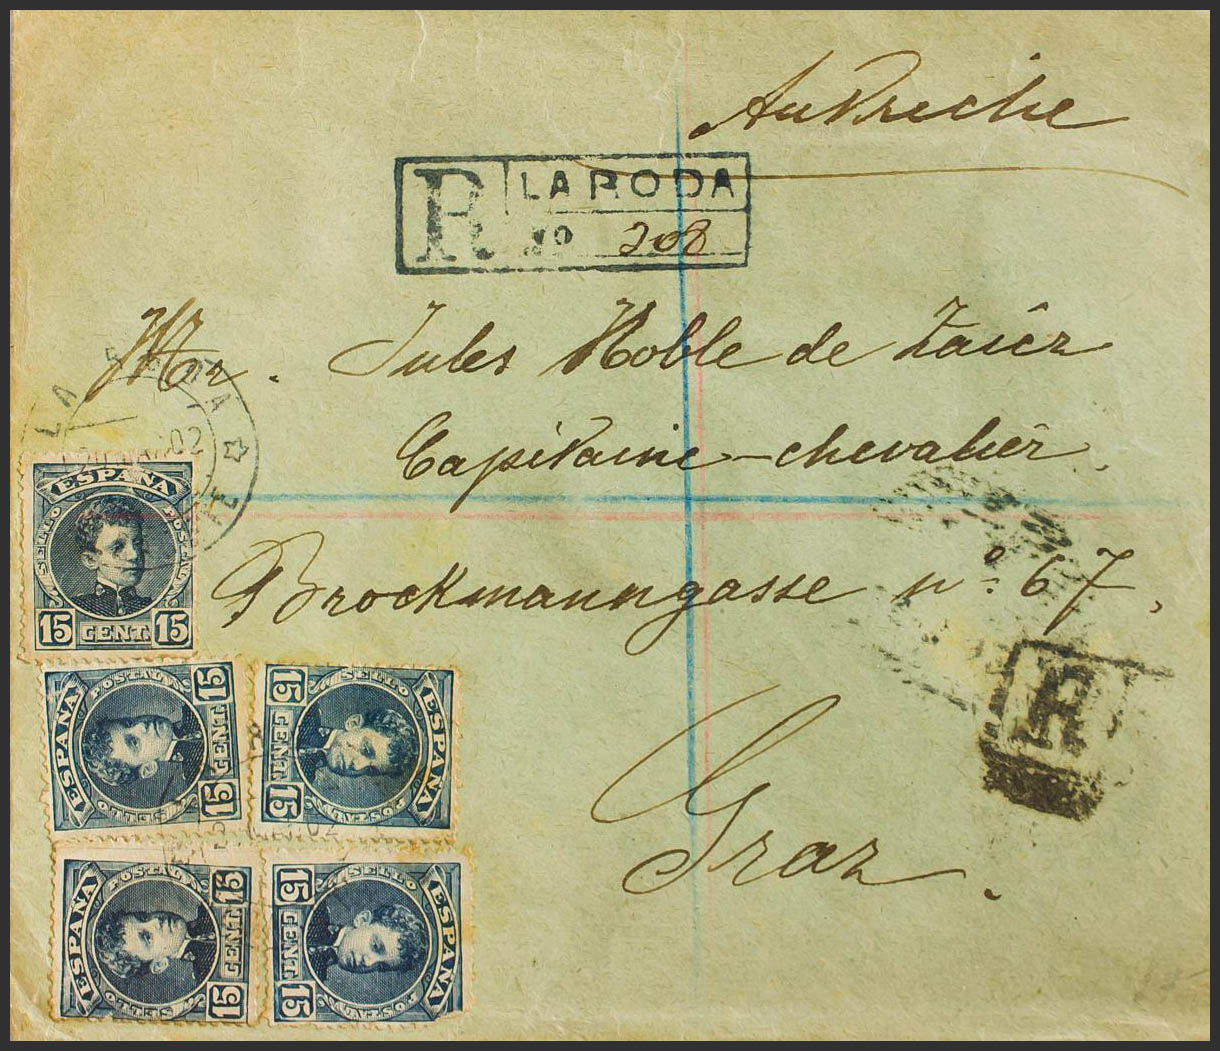 Autriche
R LA RODA
No 208
Mr. Jules Noble de
Capitaine-chevalier,
Brockmanngasse nº 67,
Graz.
R
LA RODA
02
ESPAÑA
SELLO POSTAL
15 CENT 15
ESPAÑA
SELLO POSTAL
15 CENT 15
ESPAÑA
SELLO POSTAL
15 CENT 15
ESPAÑA
SELLO POSTAL
15 CENT 15
ESPAÑA
SELLO POSTAL
15 CENT 15
02